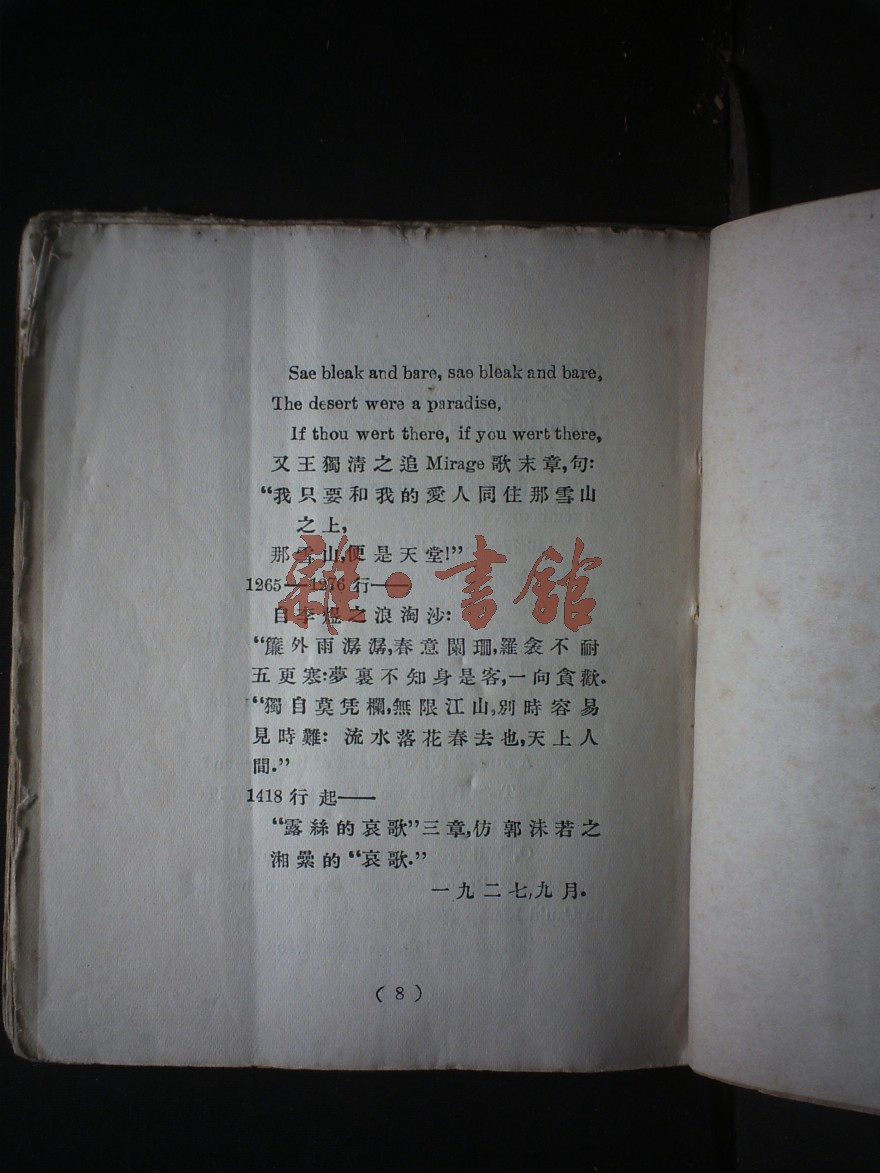 Sae bleak and bare, sae bleak and bare,
The desert were a paradise,
If thou wert there, if you wert there,
又王獨清之追Mirage歌末章,句:
“我只要和我的愛人同住那雪山
之上,
那雪山,便是天堂!”
1265—1276行——
自李煜之浪淘沙:
“簾外雨潺潺,春意闌珊,羅衾不耐
五更寒:夢裏不知身是客,一向貪歡.
“獨自莫凭欄,無限江山,別時容易
見時難: 流水落花春去也,天上人
間.”
1418行起——
“露絲的哀歌”三章,仿郭沫若之
湘纍的“哀歌.”
一九二七,九月.
(8)
雜·書館